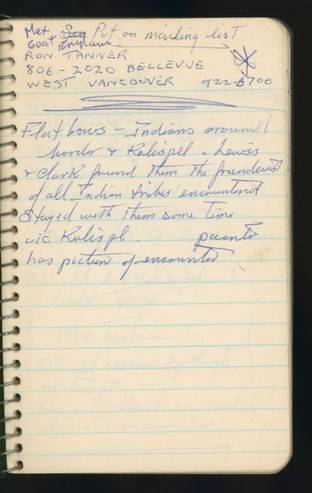 Met Put on mailing list
Goat
RON TANNER
806-2020 BELLEVUE
WEST VANCOUVER 922-6700
Flatbows - Indians around
border & Kalispel. Lewis
& Clark found them the friendliest
of all Indian tribes encountered
Stayed with them some time
vic Kalispl.
has picture of encounter